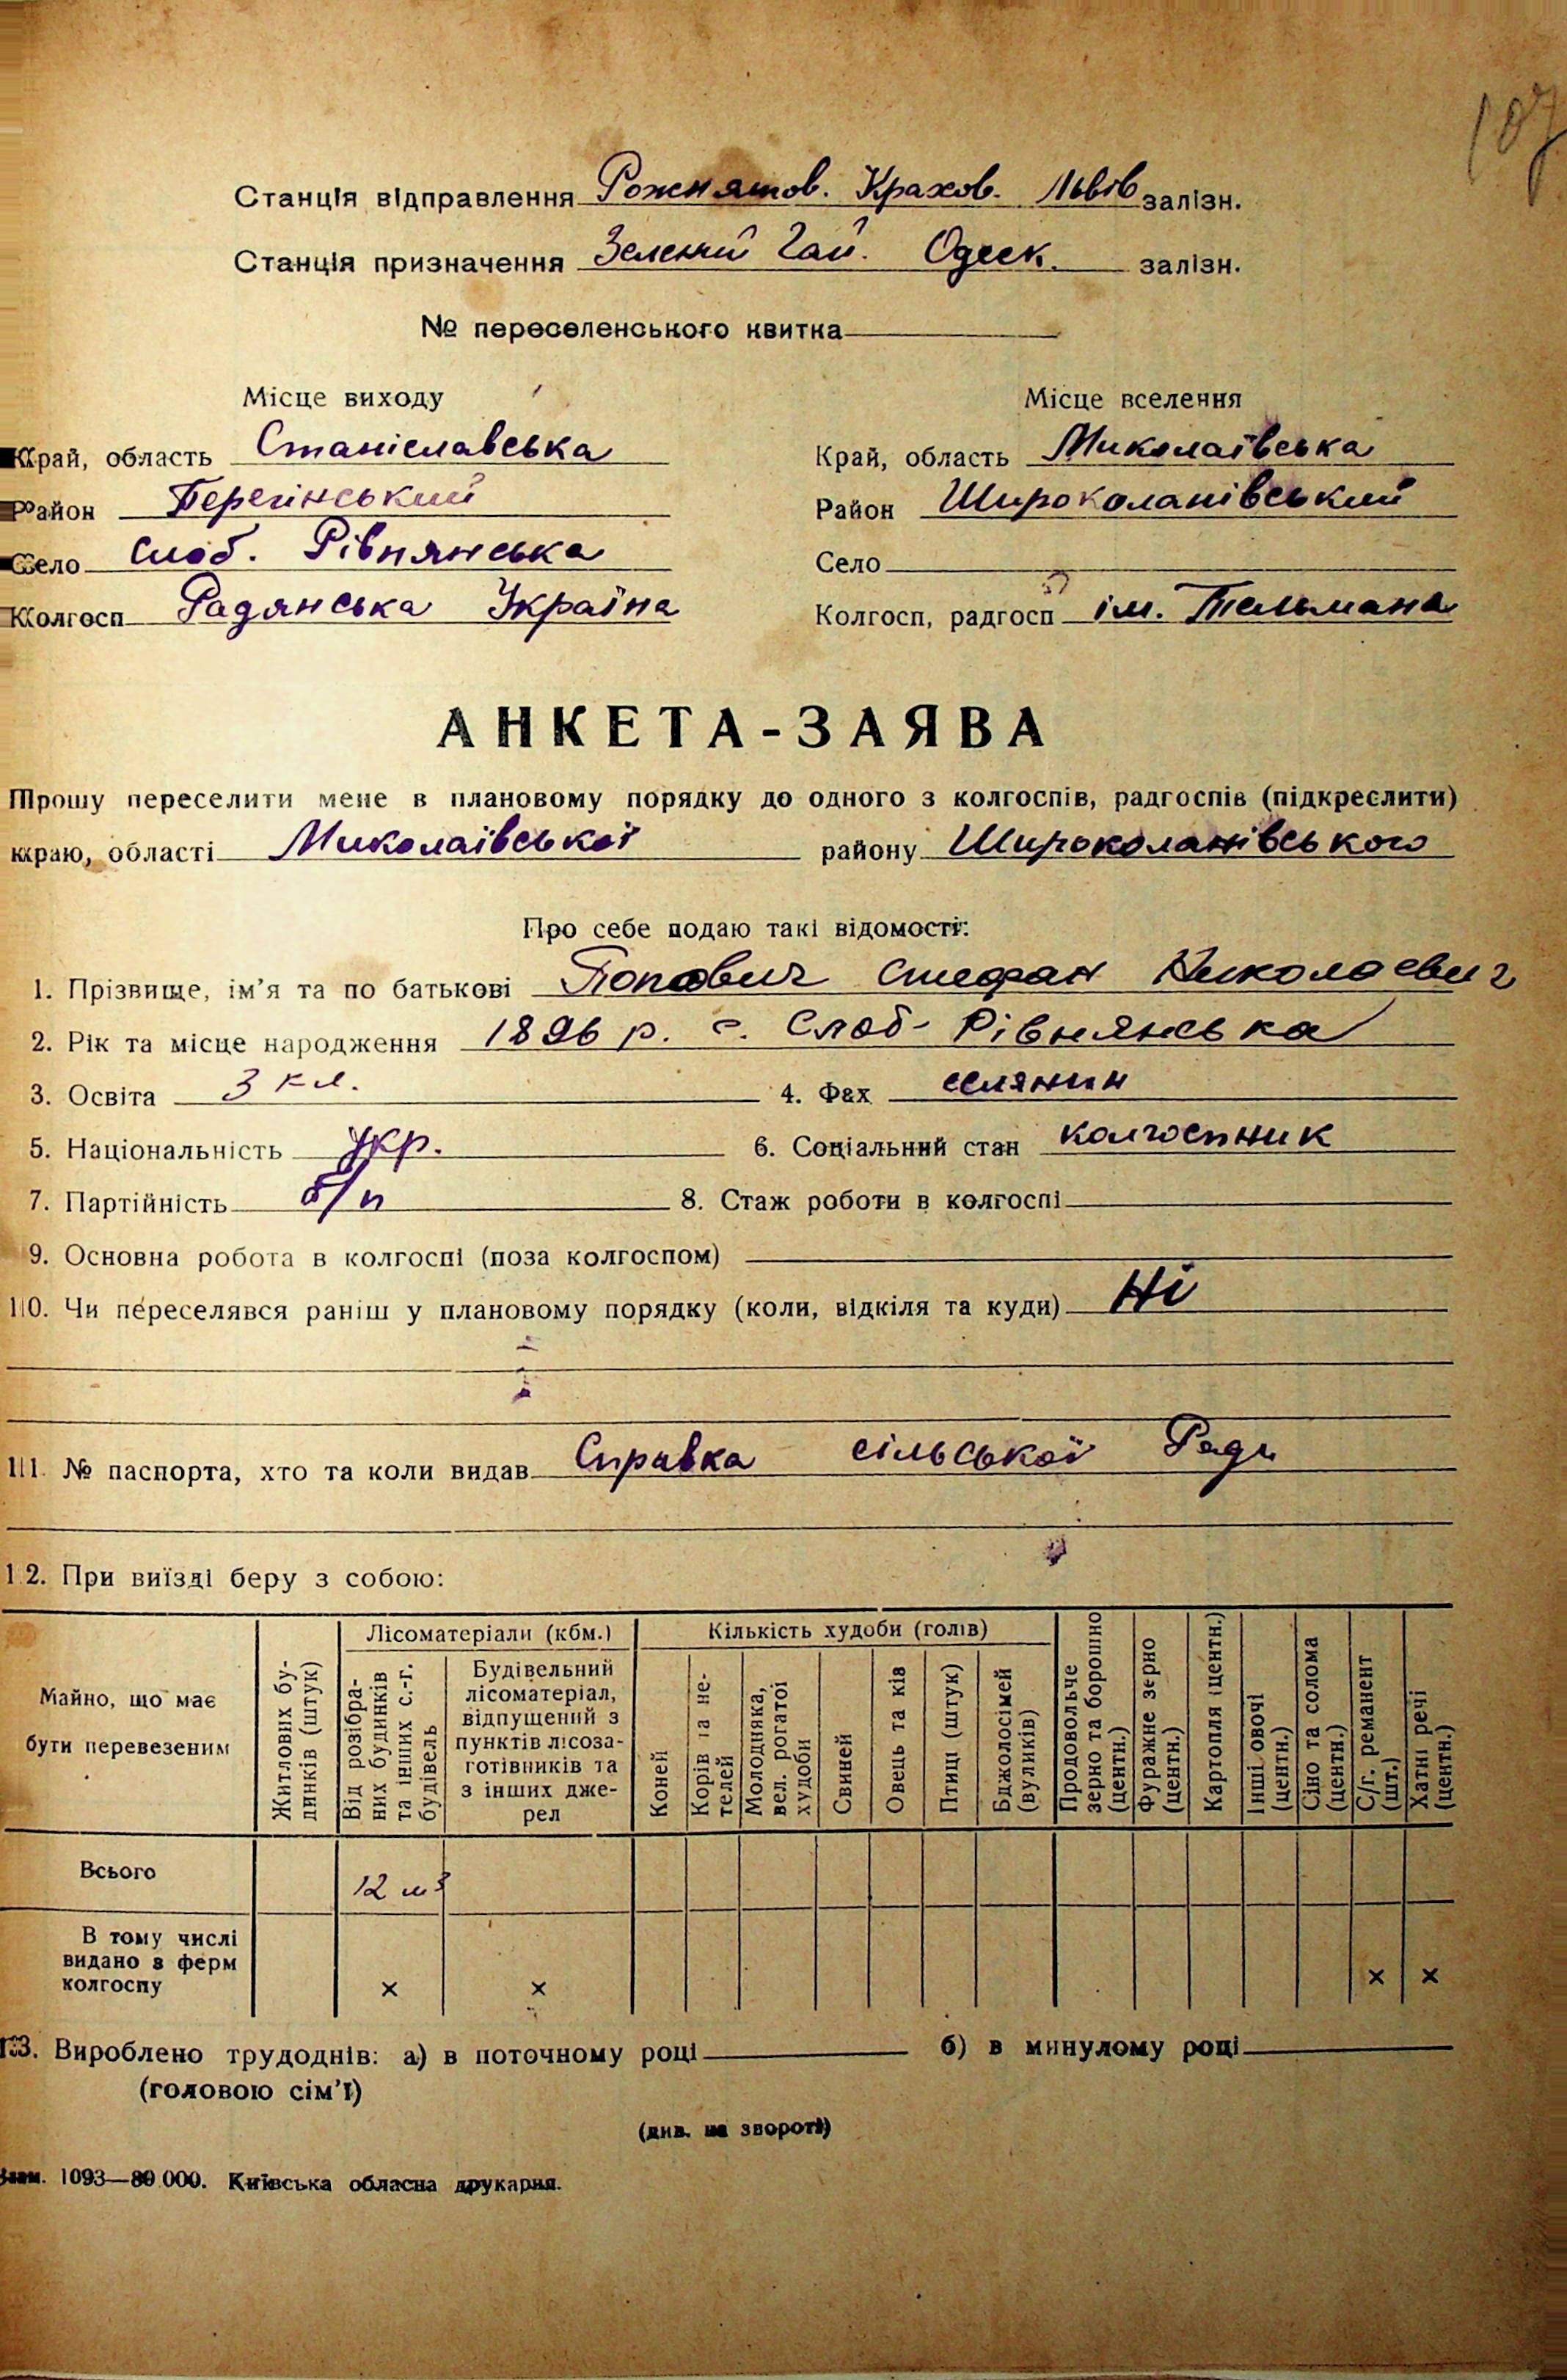 107
Станція відправлення Рожнятов. Крахов. Львів залізн.
Станція призначення Зелений Гай. Одеск. залізн.
№ переселенського квитка
Місце виходу
Місце вселення
Край, область Станіславська
Край, область Миколаївська
Район Перегінський
Район Широколанівський
Село Слоб. Рівнянська
Село
Колгосп Радянська Україна
Колгосп, радгосп ім. Тельмана
АНКЕТА-ЗАЯВА
Прошу переселити мене в плановому порядку до одного з колгоспів, радгоспів (підкреслити)
краю, області Миколаївської району Широколанівського
Про себе подаю такі відомості:
1. Прізвище, ім’я та по батькові Попович Стефан Николаевич
2. Рік та місце народження 1896 р. с. Слоб-Рівнянська
3. Освіта 3 кл. 4. Фах селянин
5. Національність Укр. 6. Соціальний стан колгоспник
7. Партійність б/п 8. Стаж роботи в колгоспі
9. Основна робота в колгоспі (поза колгоспом)
10. Чи переселявся раніш у плановому порядку (коли, відкіля та куди) Ні
11. № паспорта, хто та коли видав Справка сільської Ради
12. При виїзді беру з собою:
Майно, що має
бути перевезеним
Житлових бу-
динків (штук)
Лісоматеріали (кбм.)
Від розібра-
них будинків
та інших с.-г.
будівель
Будівельний
лісоматеріал,
відпущений з
пунктів лісоза-
готівників та
з інших дже-
рел
Кількість худоби (голів)
Коней
Корів та не-
телей
Молодняка,
вел. рогатої
худоби
Свиней
Овець та ків
Птиці (штук)
Бджолосімей
(вуликів)
Продовольче
зерно та борошно
(центн.)
Фуражне зерно
(центн.)
Картопля (центн.)
Інші овочі
(центн.)
Сіно та солома
(центн.)
С/г. реманент
(шт.)
Хатні речі
(центн.)
Всього 12 м³
В тому числі
видано з ферм
колгоспу × × × ×
13. Вироблено трудоднів: а) в поточному році б) в минулому році
(головою сім’ї)
(див. на звороті)
Зам. 1093—80 000. Київська обласна друкарня.